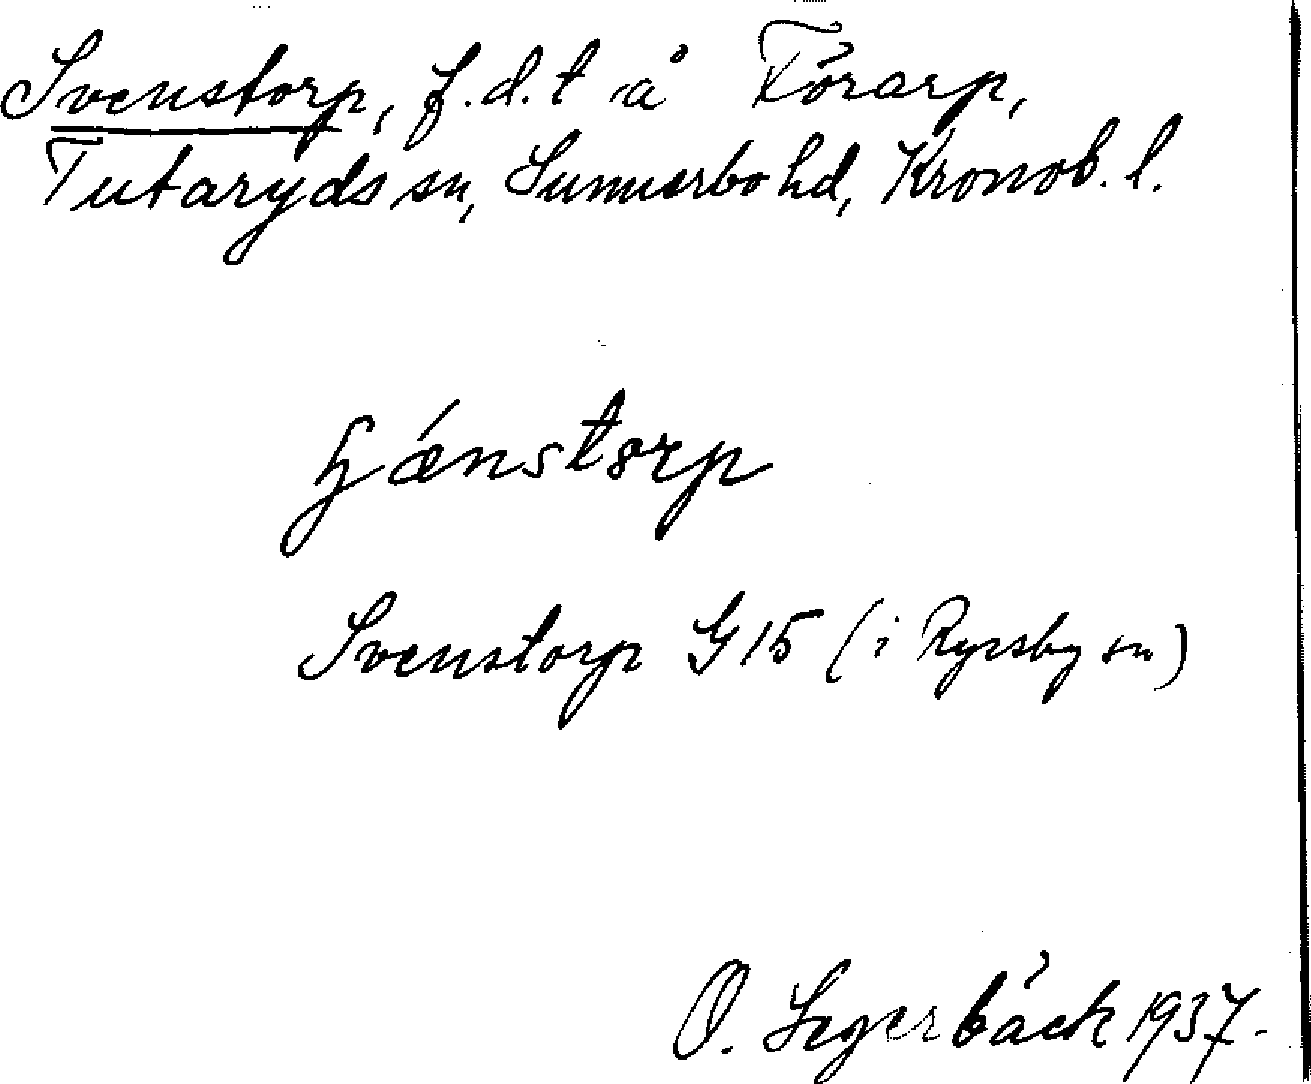 Svenstorp, f.d.t å Törarp,
Tutaryds sn, Sunnerbo hd, Kronob. l.
Svenstorp G 15 (i Ryssby sn)
O. Segerbäck 1937.